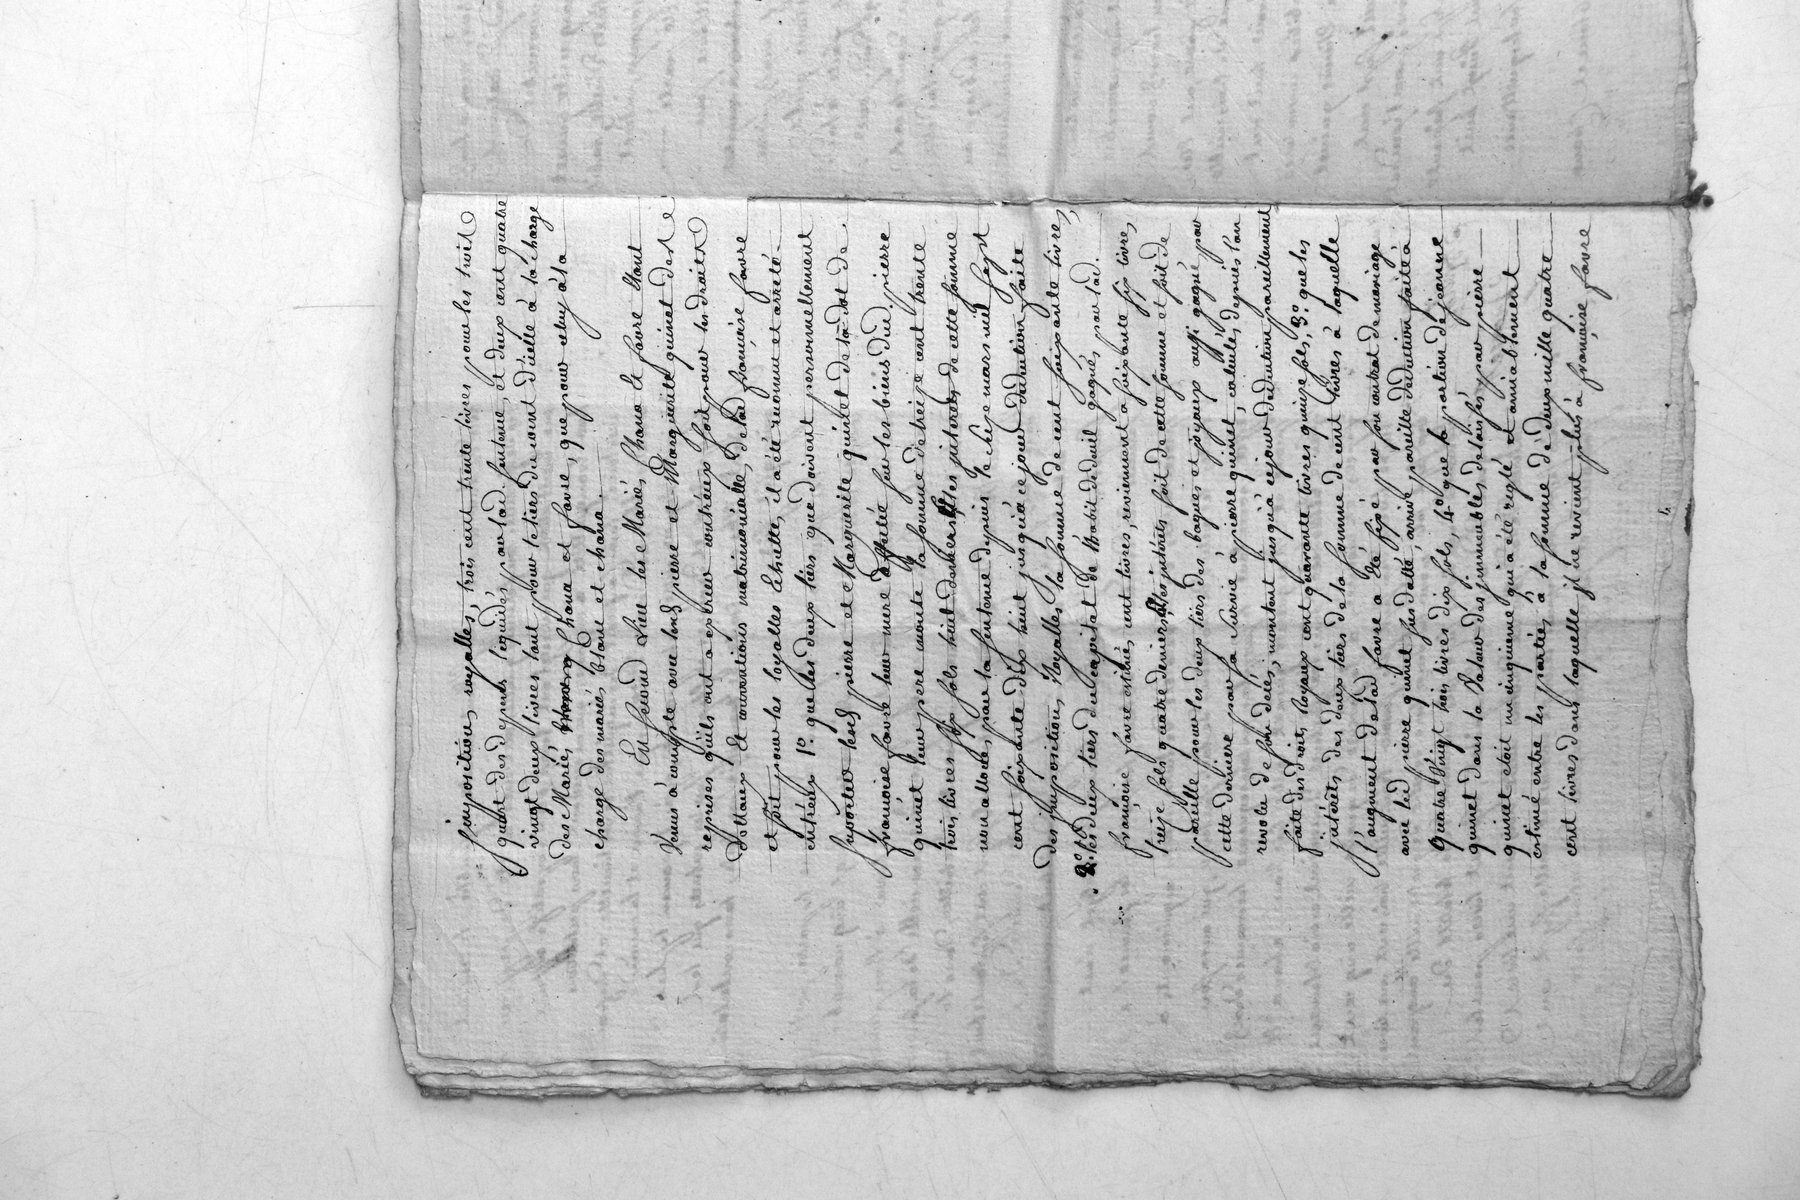 jmposition, royalles, trois cent trente livres pour les trois
quart des depens liquidés par lad. sentence, et deux cent quatre
vingt deux livres tout pour le tiers du vront d'icelle à la charge
des Mariés chana et favre, que pour celuy à la
charge des mariés blanc et chana.
En second Lieu les Mariés Chana Et favre Etant
Venus à compte avec lesd pierre et Marguerite quinet des
reprises qu'ils ont a exercer contr'eux soit pour les droits
Dottaux Et conventions matrimonialles de lad françoise favre
et soit pour les loyalles Echuttes, il a été reconnu et arreté
entr'eux 1º que les deux tiers que doivent personnellement
suporter lesd pierre et Marguerite quinet de la dot de
françoise favre leur mere affectée sur les biens dud. pierre
quinet leur pere monte la somme de treize cent trente
trois livres six sols huit deniers, les interets de cette somme
non alloués par la sentence depuis le dixe mars mil sept
cent soixante dix huit jusqu'à ce jour deduction faite
des jmposition, Royalles la somme de cent soixante livres,
2º les deux tiers du capital de l'habit de deuil gagnés par lad.
françoise favre estimés cent livres, reviennent a soixante six livres,
treize sols quatre deniers, les intérêts soit de cette somme et soit de
pareille pour les deux tiers des bagues et joyaux aussi gagné par
cette derniere par sa survie à pierre quinet, calculés depuis l'an
revolu de son décés, montent jusqu'à ce jour deduction pareillement
faite des droits Royaux cent quarante livres quinze sols, 3º que les
jntérêts des deux tiers de la somme de cent livres à laquelle
l'augment de lad favre a été fixé par son contrat de mariage
avec led pierre quinet son decédé, arrive pareille deduction faite à
quatre vingt trois livres dix sols, 4º que la portion de jeanne
quinet dans la Valeur des jmmeubles delaissés par pierre
quinet etoit un cinquieme qui a été reglé et amiablement
estimé entre les parties à la somme de deux mille quatre
cent livres dans laquelle jl ne revient plus à françoise favre